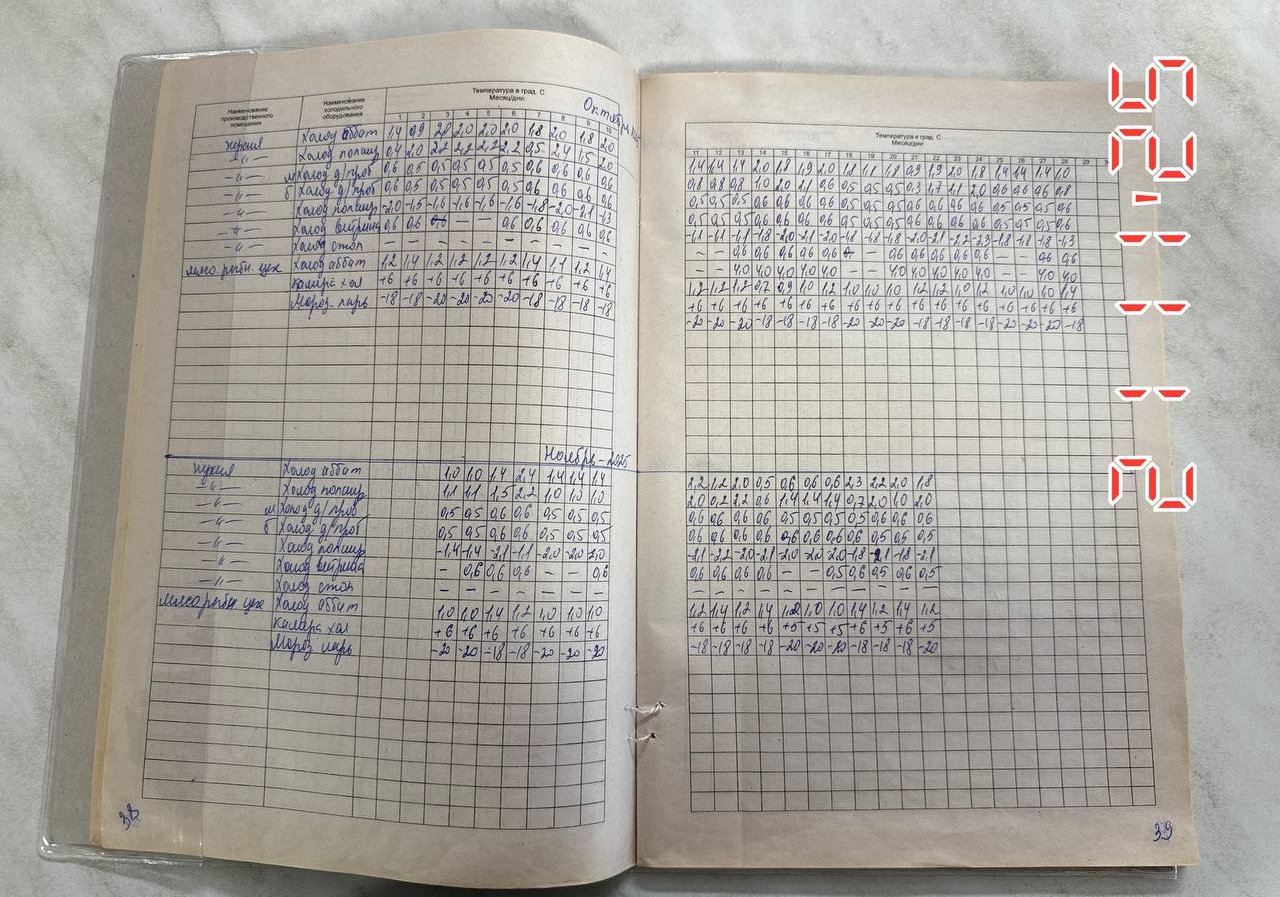 Температура в град. С
Месяц/дни:
Наименование производственного помещения
Наименование холодильного оборудования
Октябрь
1 2 3 4 5 6 7 8 9 10
кухня Холод аббат 1,4 0,9 2,0 2,0 2,2 2,0 1,8 2,0 1,8 2,0
-"- Холод полаир 0,4 2,0 2,2 2,2 2,2 2,2 0,5 2,4 1,5 2,0
-"- м Холод д/проб 0,6 0,5 0,5 0,5 0,5 0,5 0,6 0,6 0,6 0,6
-"- б Холод д/проб 0,6 0,5 0,5 0,5 0,5 0,5 0,6 0,6 0,6 0,6
-"- Холод полаир -2,0 -1,5 -1,6 -1,6 -1,6 -1,6 -1,8 -2,0 -2,1 -1,3
-"- Холод витрина 0,6 0,6 — — 0,6 0,6 0,6 0,6 0,6
-"- Холод стол — — — — — — — — — —
мясо.рыбн. цех Холод аббат 1,2 1,4 1,2 1,2 1,2 1,2 1,4 1,1 1,2 1,4
Камера хол +6 +6 +6 +6 +6 +6 +6 +6 +6 +6
Мороз. ларь -18 -18 -20 -20 -20 -20 -18 -18 -18 -18
Ноябрь - 2025
кухня Холод аббат 1,0 1,0 1,4 2,4 1,4 1,4 1,4
-"- Холод полаир 1,1 1,1 1,5 2,2 1,0 1,0 1,0
-"- м Холод д/проб 0,5 0,5 0,6 0,6 0,5 0,5 0,5
-"- б Холод д/проб 0,5 0,5 0,6 0,6 0,5 0,5 0,5
-"- Холод полаир -1,4 -1,4 -2,1 -1,1 -2,0 -2,0 -2,0
-"- Холод витрина — 0,6 0,6 0,6 — — 0,6
-"- Холод стол — — — — — — —
мясорыбн цех Холод аббат 1,0 1,0 1,4 1,2 1,0 1,0 1,0
Камера хол +6 +6 +6 +6 +6 +6 +6
Мороз ларь -20 -20 -18 -18 -20 -20 -20
38
Температура в град. С
Месяц/дни:
11 12 13 14 15 16 17 18 19 20 21 22 23 24 25 26 27 28 29
1,4 1,4 1,4 2,0 1,8 1,9 2,0 1,8 1,8 1,8 0,9 1,9 2,0 1,8 1,4 1,4 1,4 1,0
0,8 0,8 0,8 1,0 2,0 2,1 0,6 0,5 0,5 0,5 0,3 1,7 2,1 2,0 0,6 0,6 0,6 0,8
0,5 0,5 0,5 0,6 0,6 0,6 0,6 0,5 0,5 0,5 0,6 0,6 0,6 0,6 0,5 0,5 0,5 0,6
0,5 0,5 0,5 0,6 0,6 0,6 0,6 0,5 0,5 0,5 0,6 0,6 0,6 0,6 0,5 0,5 0,5 0,6
-1,1 -1,1 -1,1 -1,8 -2,0 -2,1 -2,0 -1,8 -1,8 -1,8 -2,0 -2,1 -2,2 -2,3 -1,8 -1,8 -1,8 -1,3
— — 0,6 0,6 0,6 0,6 0,6 — 0,6 0,6 0,6 0,6 0,6 — — 0,6 0,6
— — 4,0 4,0 4,0 4,0 4,0 — — 4,0 4,0 4,0 4,0 4,0 — — 4,0 4,0
1,2 1,2 1,2 0,7 0,9 1,0 1,2 1,0 1,0 1,0 1,2 1,2 1,0 1,2 1,0 1,0 1,0 1,4
+6 +6 +6 +6 +6 +6 +6 +6 +6 +6 +6 +6 +6 +6 +6 +6 +6 +6
-20 -20 -20 -18 -18 -18 -18 -20 -20 -20 -18 -18 -18 -18 -20 -20 -20 -18
2,2 1,2 2,0 0,5 0,6 0,6 0,6 2,3 2,2 2,0 1,8
2,0 0,2 2,2 0,6 1,4 1,4 1,4 0,7 2,0 1,0 2,0
0,6 0,6 0,6 0,6 0,5 0,5 0,5 0,5 0,6 0,6 0,6
0,6 0,6 0,6 0,6 0,6 0,6 0,6 0,6 0,5 0,5 0,5
-2,1 -2,2 -2,0 -2,1 -2,0 -2,0 -2,0 -1,8 -2,1 -1,8 -2,1
0,6 0,6 0,6 0,6 — — 0,5 0,6 0,5 0,6 0,5
— — — — — — — — — — —
1,2 1,4 1,2 1,4 1,2 1,0 1,0 1,4 1,2 1,4 1,2
+6 +6 +6 +6 +5 +5 +5 +6 +5 +6 +5
-18 -18 -18 -18 -20 -20 -20 -18 -18 -18 -20
39
21.11.'25